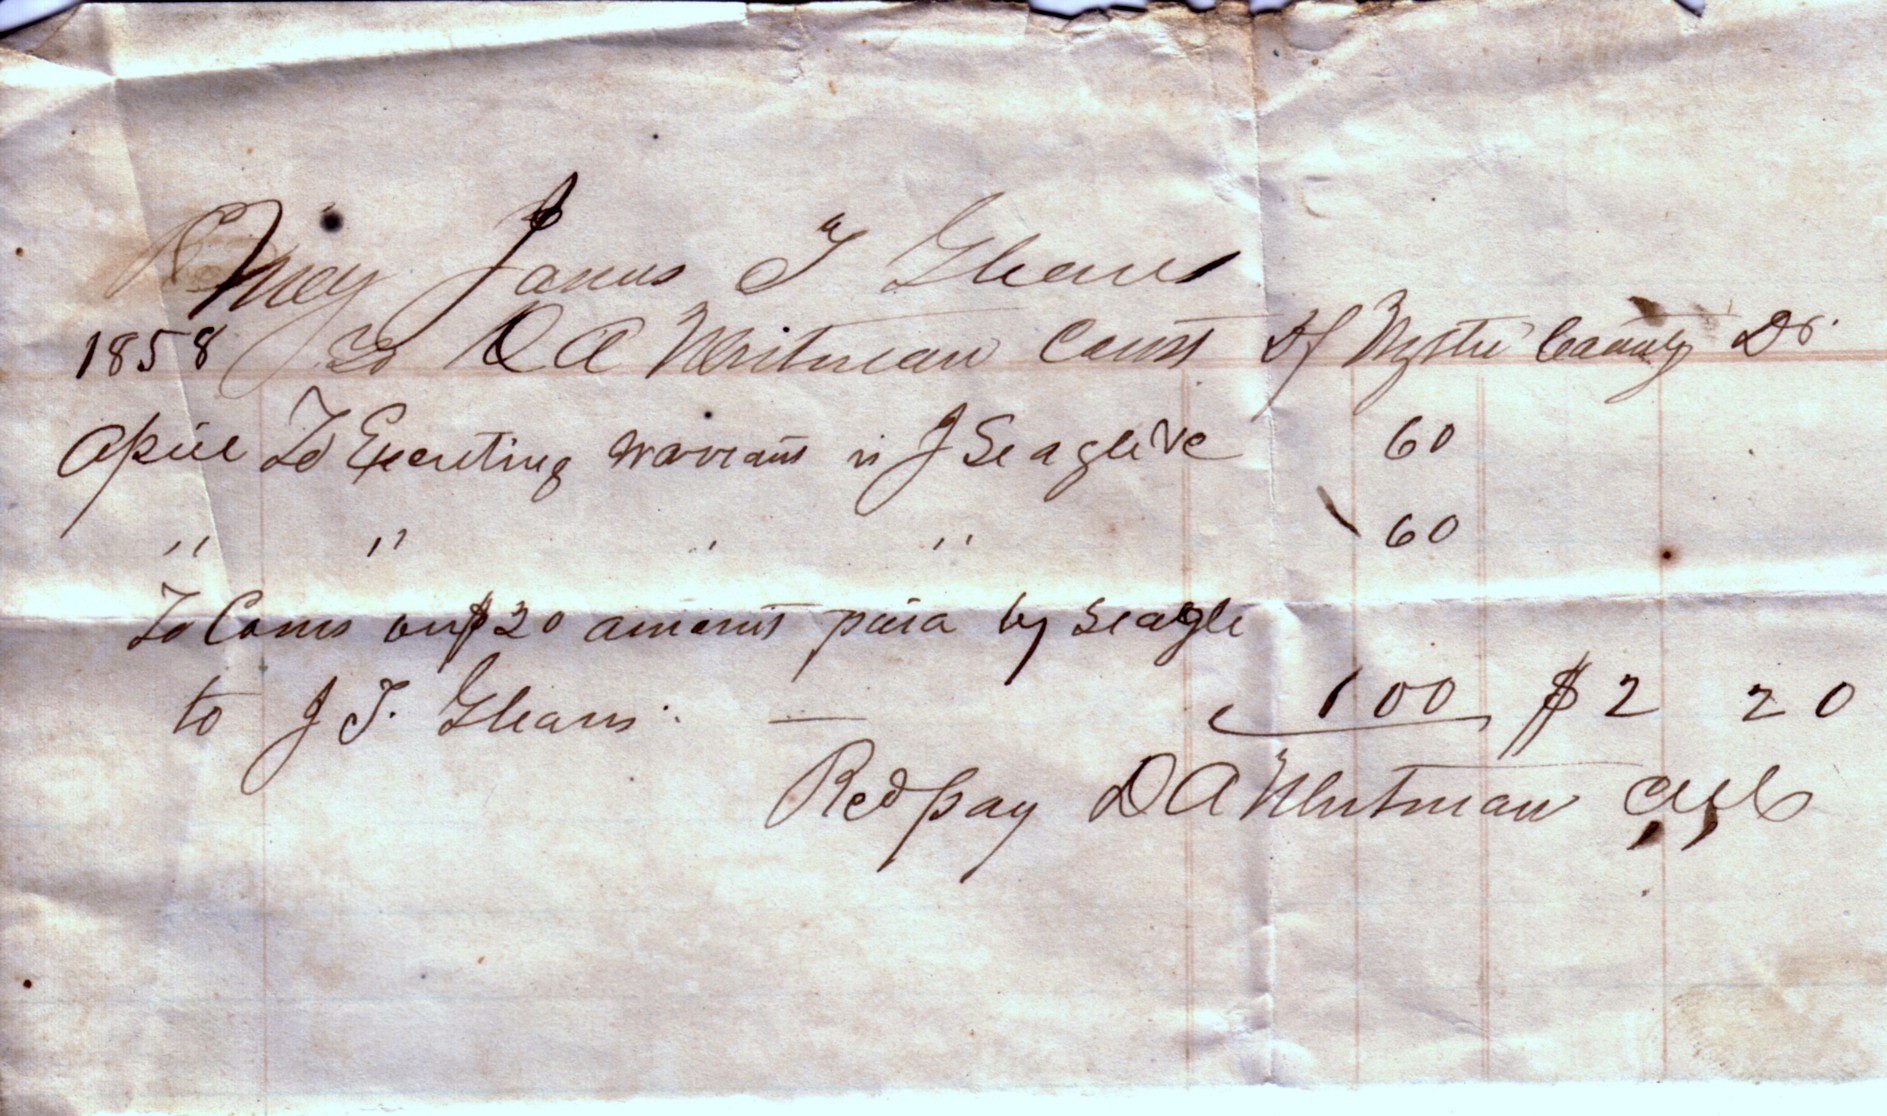 May James T Gleaves
1858 To D A Whitman Const of Wythe County Dr.
April To Executing warrant vs J Seagle &c 60
" " " " 60
To Coms on $20 amount paid by Seagle
to J T. Gleaves. — 100 $2 20
Recd pay D A Whitman